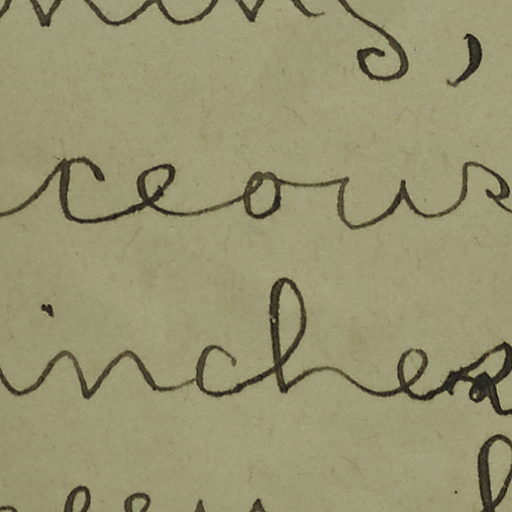 ning,
ceous
inches